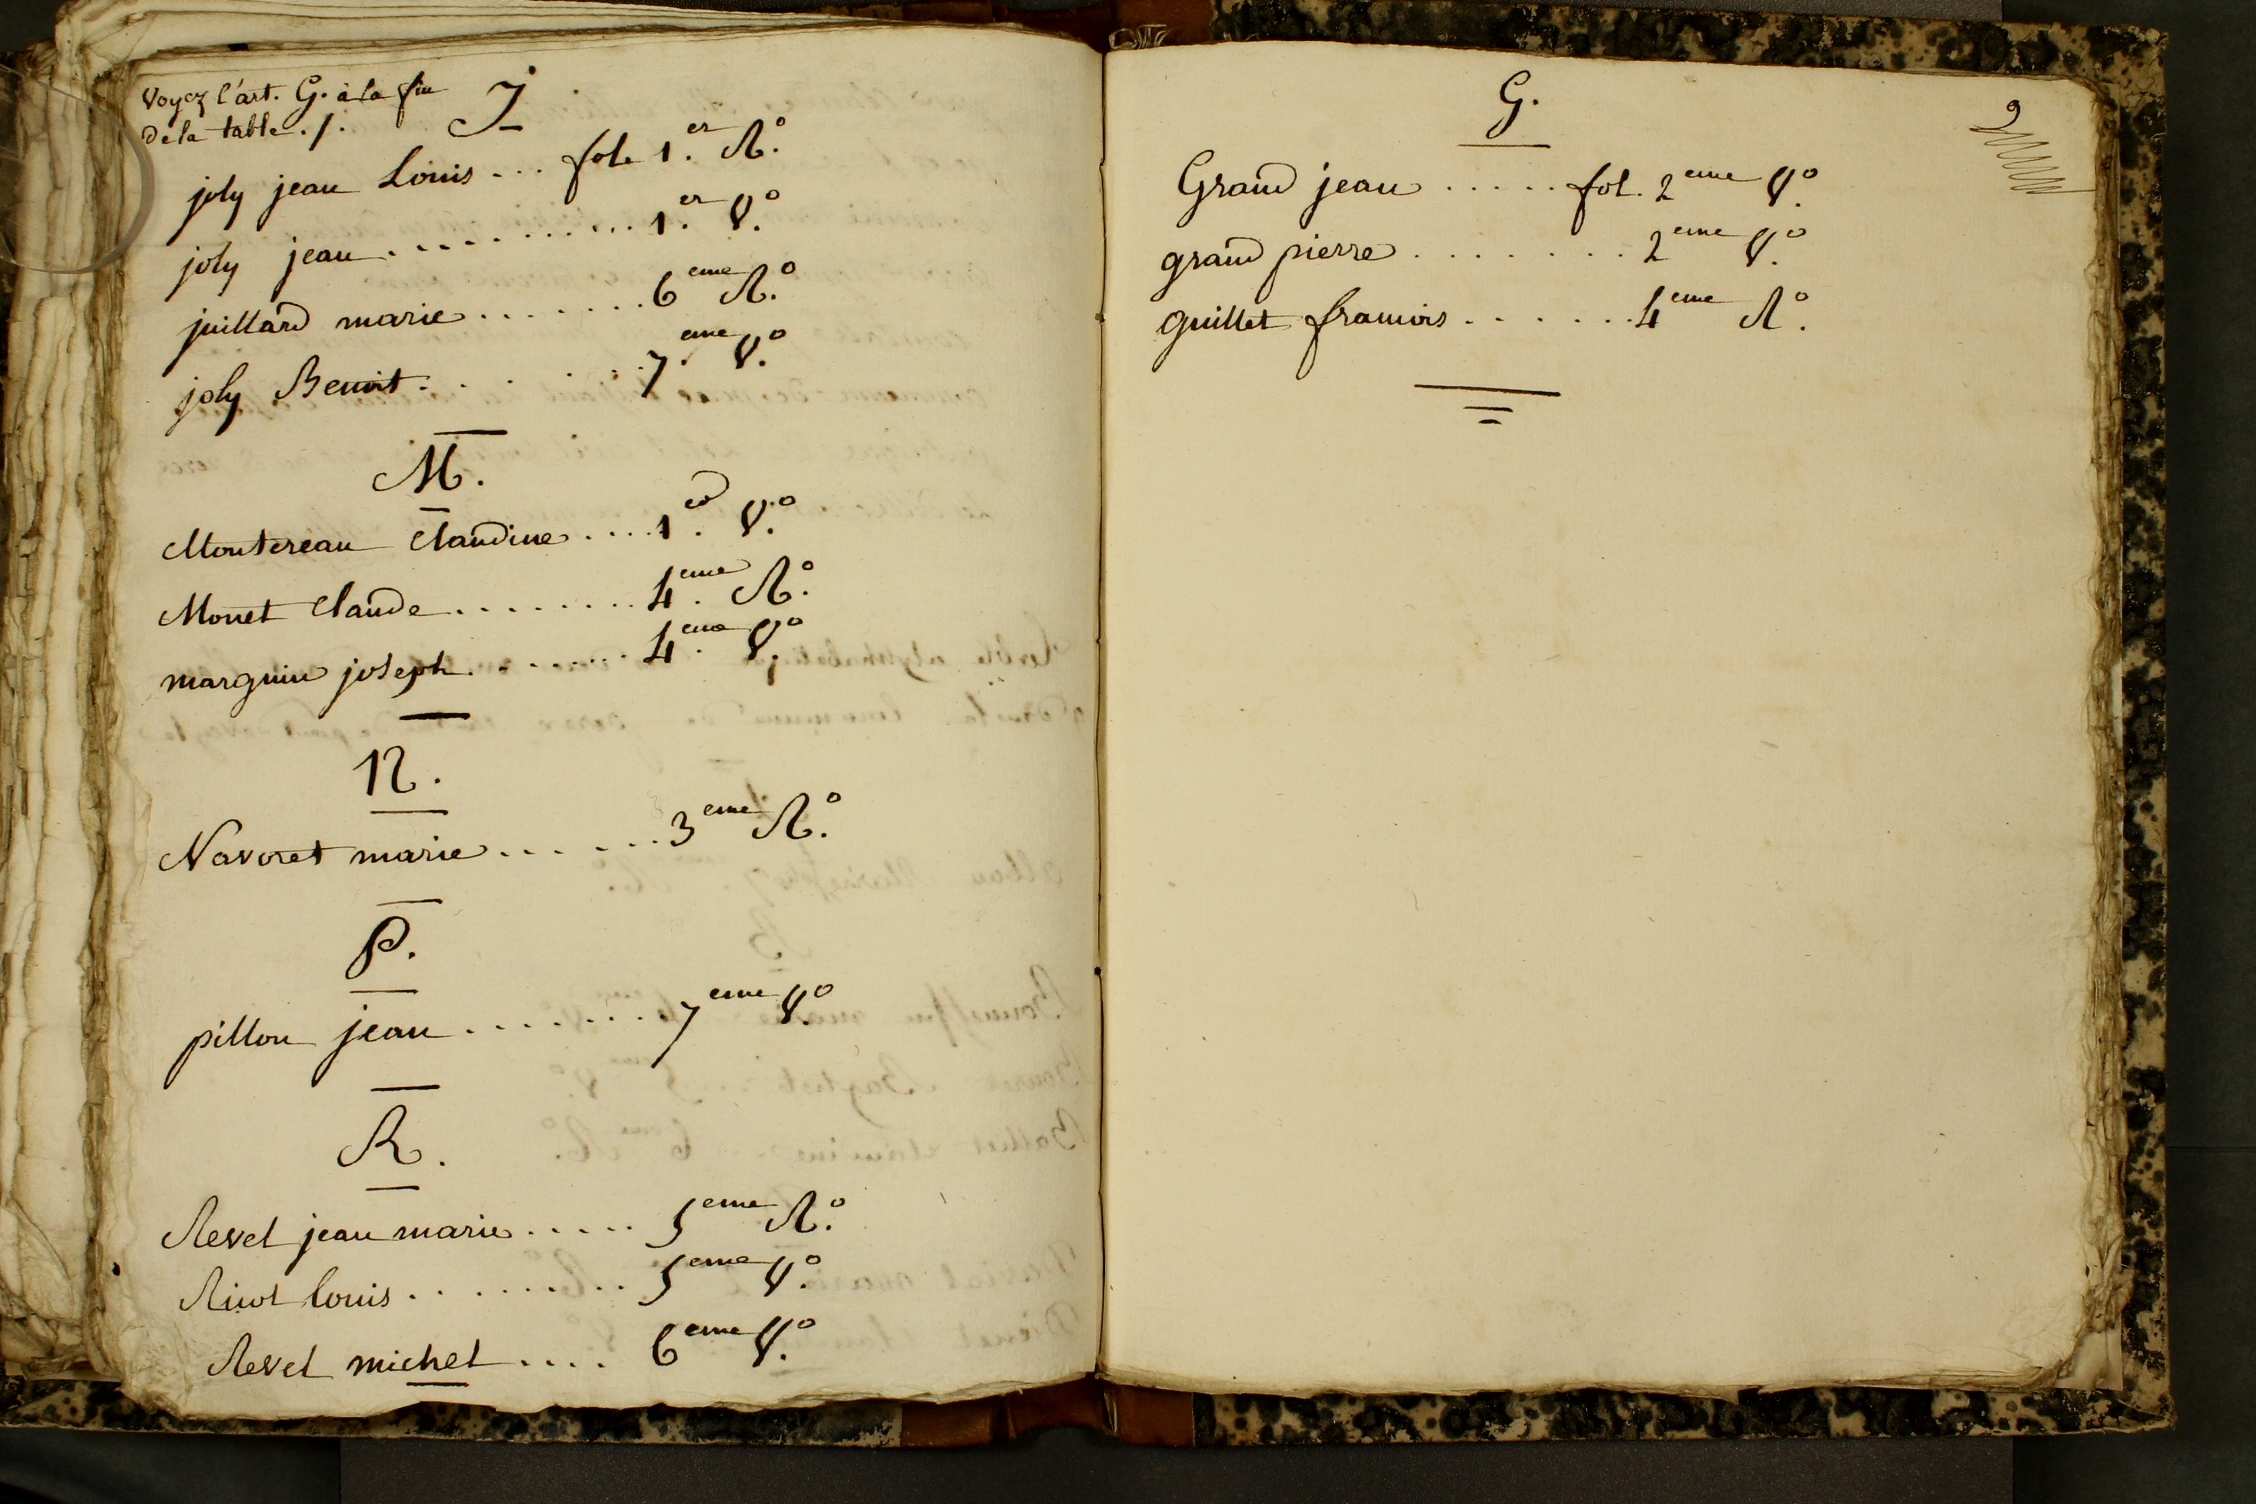 Voyez l'art. G. à la fin
de la table ./.
J
joly jean Louis ... fol. 1.er R.o
joly jean ........... 1.er V.o
juillard marie ....... 6eme R.o
joly Benoit ....... 7.eme V.o
M.
Montereau Claudine .... 1.er V.o
Monet Claude ........ 4.eme R.o
marguin joseph ........ 4.eme V.o
N.
Navoret marie ...... 3eme R.o
P.
pillon jean ....... 7eme V.o
R.
Revel jean marie ..... 5eme R.o
louis ........ 5eme V.o
Revel michel .... 6eme V.o
G.
2
Grand jean ..... fol. 2eme V.o
grand pierre ........ 2eme V.o
guillet francois ...... 4eme R.o